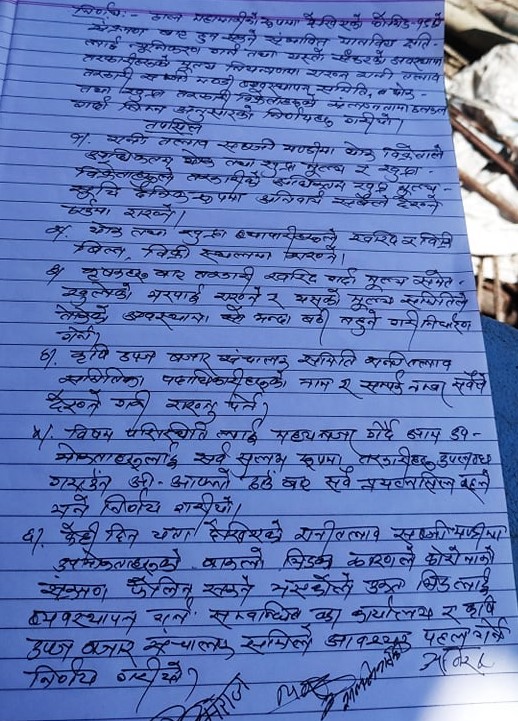 निर्णय:- हाल महामारीको रूपमा देखिएको कोभिड-१९को
संक्रमण बाट हुन सक्ने संभावित मानविय क्षति-
लाई न्यूनिकरण गर्न तथा यस्तो
तरकारीहरूको मूल्य नियन्त्रणमा राख्न रानी तलाव
तरकारी सब्जी मण्डी व्यवस्थापन समिति, थोक
तथा खुद्रा तरकारी बिक्रेताहरूको
गरी निम्न अनुसारको निर्णयहरू गरियो।
तपसिल
१। रानी तलाव सब्जी मण्डीमा थोक बिक्रेताले
अधिकतम थोक तथा खुद्रा मूल्य र खुद्रा
बिक्रेताहरूले तरकारीको अधिकतम खुद्रा मूल्य-
सूचि दैनिक रूपमा अनिवार्य सबैले देख्ने
ठाउँमा राख्ने।
२। थोक तथा खुद्रा व्यापारीहरूले खरिद र बिक्री
बिल, बिक्री स्थलमा राख्ने।
३। कृषकहरू बाट तरकारी खरिद गर्दा मूल्य समेत-
खुलेको भरपाई राख्ने र यसको मूल्य समितिले
तोकेको व्यवस्थामा भन्दा बढी नहुने गरी निर्धारण
गर्ने।
४। कृषि उपज बजार संचालक समिति रानी तलाव
समितिका पदाधिकारीहरूको नाम र सम्पर्क नम्बर सबैले
देख्ने गरी राख्नु पर्ने।
५। विषम परिस्थिति लाई मध्यनजर गर्दै आम उप-
भोक्ताहरूलाई सर्व सुलभ रूपमा तरकारीहरू उपलब्ध
गराउन आ-आफ्नो ठाउँ बाट सबै प्रयत्नसिल रहने
भन्ने निर्णय गरियो।
६। केही दिन यता देखिएको रानीतलाव सब्जी मण्डीमा
उपभोक्ताहरूको बाक्लो भिडका कारणले कोरोनाको
संक्रमण फैलिन सक्ने भएकोले उक्त भिडलाई
व्यवस्थापन गर्न सम्बन्धित वडा कार्यालय र कृषि
उपज बजार संचालक समितिले आवश्यक पहल गर्ने
निर्णय गरियो।